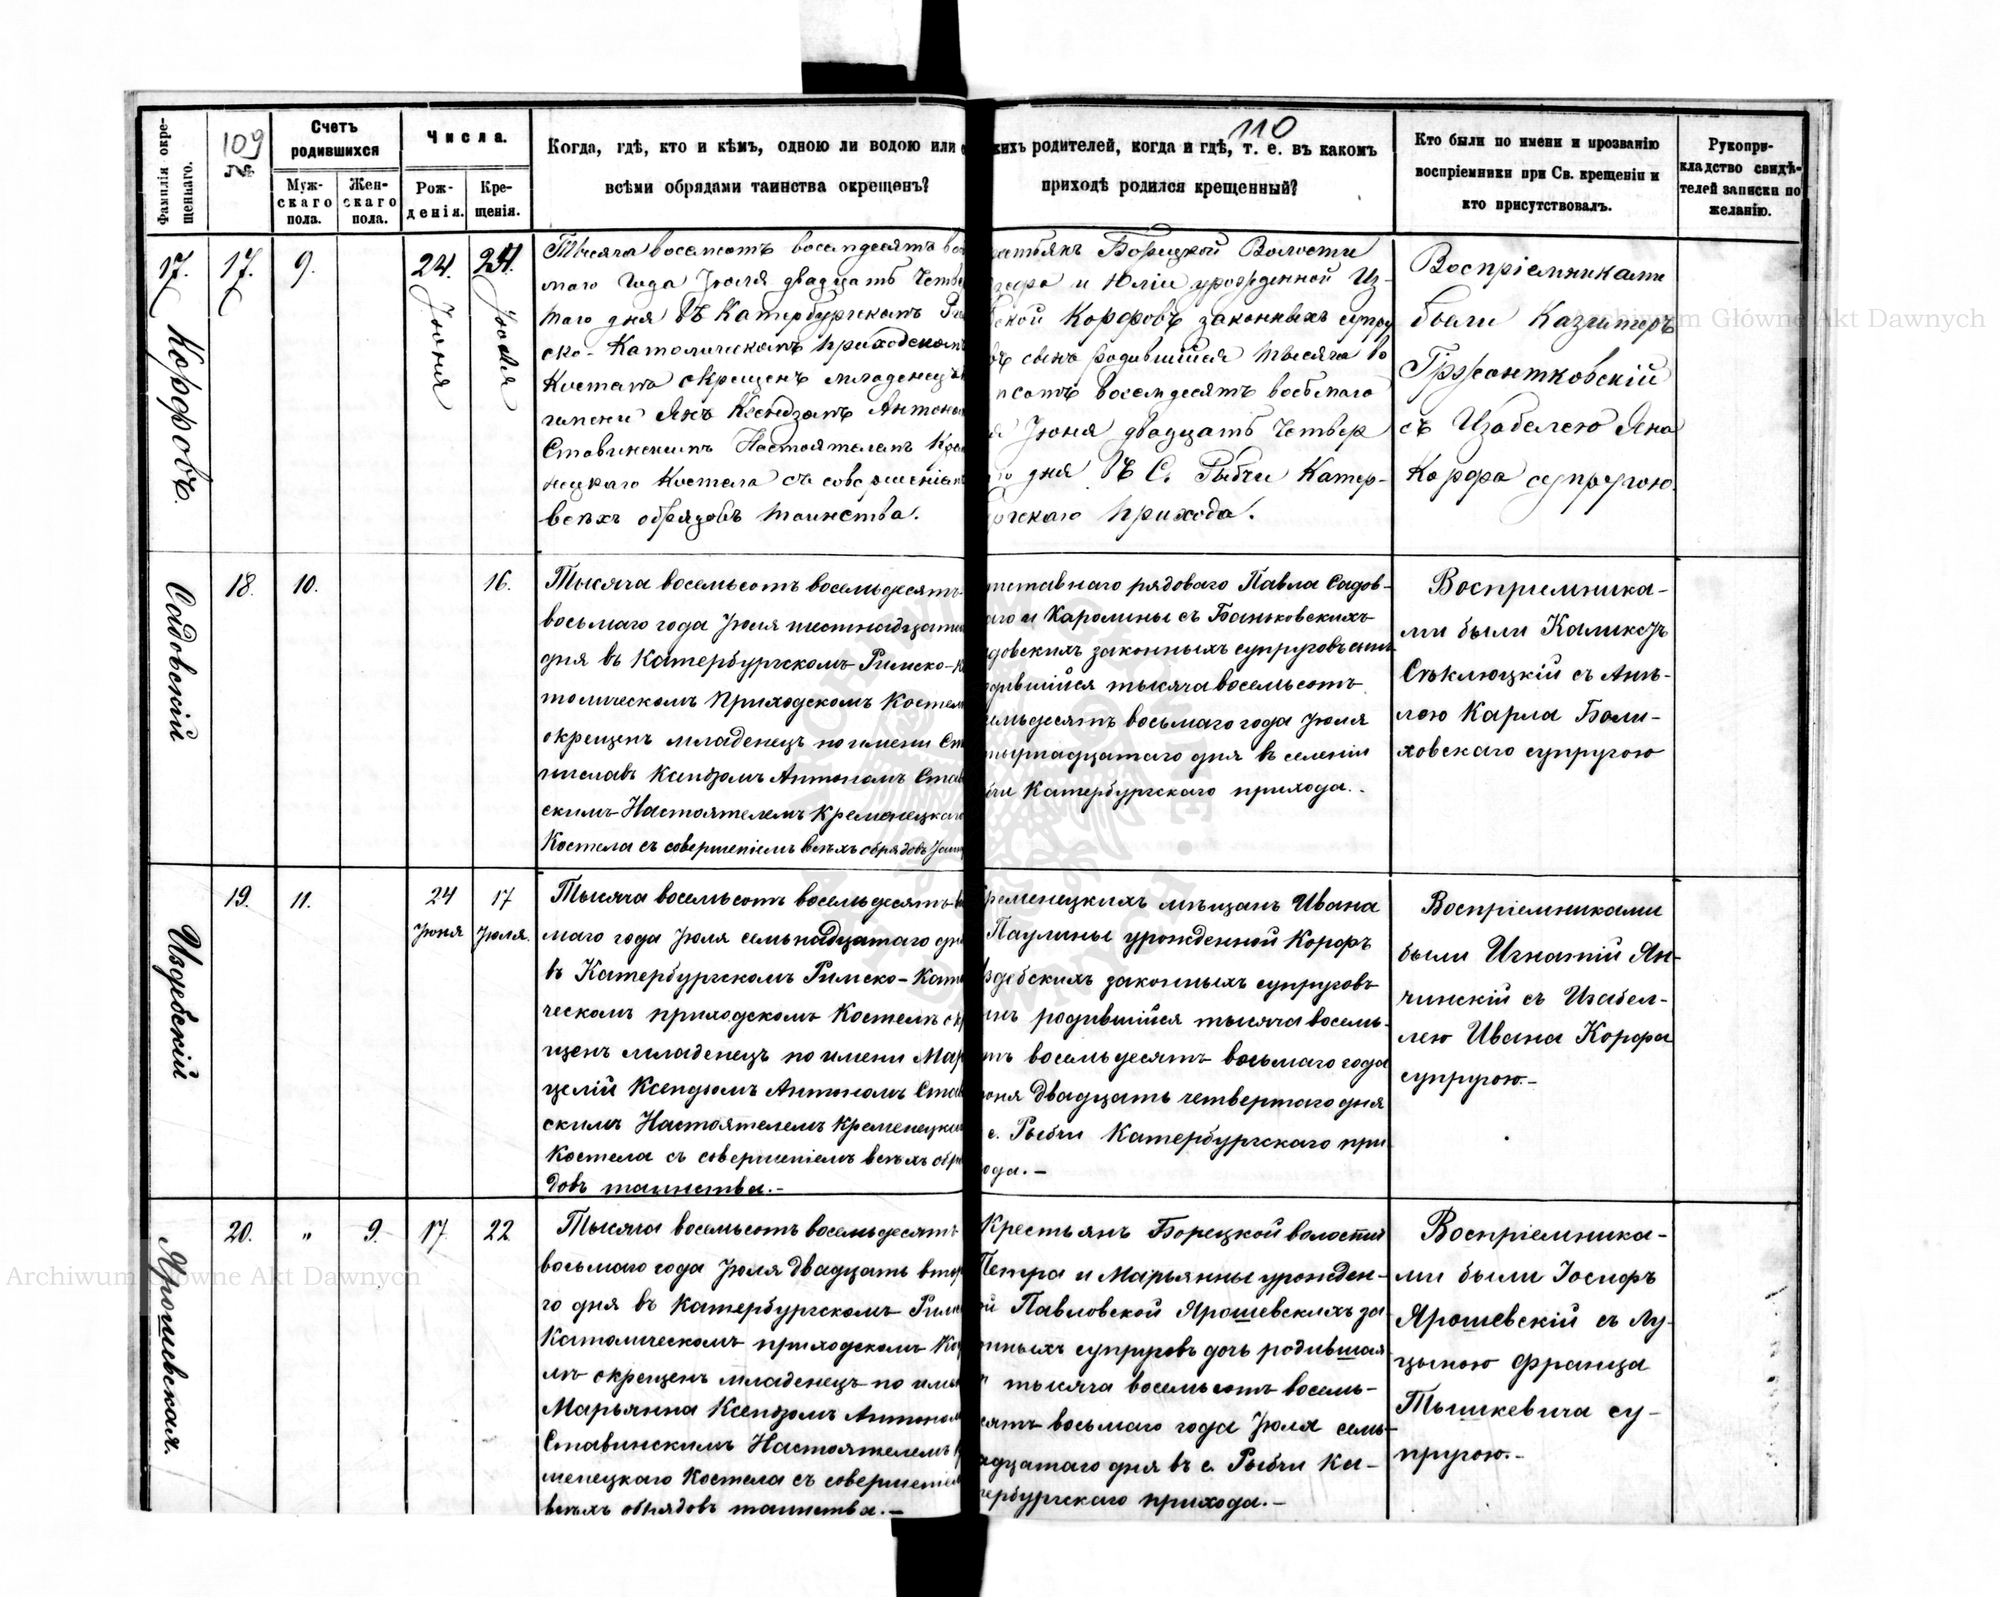 109
110
Фамилія окре-
щеннаго.
№
Счетъ
родившихся
Муж-
скаго
пола.
Жен-
скаго
пола.
Числа.
Рож-
денія.
Кре-
щенія.
Когда, гдѣ, кто и кѣмъ, одною ли водою или
всѣми обрядами таинства окрещенъ?
родителей, когда и гдѣ, т. е. въ какомъ
приходѣ родился крещенный?
Кто были по имени и прозванію
воспріемники при Св. крещеніи и
кто присутствовалъ.
Рукопри-
кладство свидѣ-
телей записки по
желанію.
17. Корфовъ.
17.
9.
24.
Іюня
24.
Іюля
Тысяча восемсотъ восемдесятъ
маго года Іюля двадцать
таго дня Въ Катербургскомъ
ско-Католическомъ приходскомъ
Костелѣ окрещенъ младенецъ
имени Янъ Ксендзомъ
Ставинскимъ Настоятелемъ
нецкаго Костела съ совершеніемъ
всѣхъ обрядовъ таинства.
Борецкой Волости
и Юліи урожденной Из-
Корфовъ законныхъ супру
сынъ родившійся тысяча во
восемдесятъ восьмаго
Іюня двадцать четвер
дня Въ С. Рыбчи Катер-
прихода.
Воспріемниками
были Казимеръ
Гржонтковскій
съ Изабелею Яна
Корфа супругою.
Садовскій
18.
10.
16.
Тысяча восемьсотъ восемьдесятъ
восьмаго года Іюля шестнадцатаго
дня въ Катербургскомъ Римско-
толическомъ Приходскомъ
окрещенъ младенецъ по имени
ниславъ Ксендзомъ Антономъ
скимъ Настоятелемъ Кременецкаго
Костела съ совершеніемъ всѣхъ обрядовъ
рядоваго Павла Садов-
и Каролины съ Баньковскихъ
законныхъ супруговъ сынъ
тысяча восемьсотъ
восьмаго года Іюля
дня въ селеніи
Катербургскаго прихода.
Воспріемника-
ми были Каликстъ
Стѣклюцкій съ Анѣ-
лею Карла Боли-
ховскаго супругою
Издебскій
19.
11.
24
Іюня
17
Іюля.
Тысяча восемьсотъ восемьдесятъ
маго года Іюля семьнадцатаго
въ Катербургскомъ Римско-
ческомъ приходскомъ Костелѣ
щенъ младенецъ по имени Мар
целій Ксендзомъ Антономъ
скимъ Настоятелемъ
Костела съ совершеніемъ всѣхъ обря
довъ таинства.-
мѣщанъ Ивана
Паулины урожденной Корфъ
законныхъ супруговъ
родившійся тысяча восемь-
восемьдесятъ восьмаго года
двадцать четвертаго дня
с. Рыбчи Катербургскаго при
хода.-
Воспріемниками
были Игнатій Ян-
чинскій съ Изабел-
лею Ивана Корфа
супругою.-
Ярошевская.
20.
"
9.
17.
22
Тысяча восемьсотъ восемьдесятъ
восьмаго года Іюля двадцать
го дня въ Катербургскомъ
Католическомъ приходскомъ
лѣ окрещенъ младенецъ по
Марьянна Ксендзомъ Антономъ
Ставинскимъ Настоятелемъ
менецкаго Костела съ
всѣхъ обрядовъ таинства.-
Крестьянъ Борецкой волости
Петра и Марьянны урожден-
Павловской Ярошевскихъ за
супруговъ дочь родившая
тысяча восемьсотъ восемь-
восьмаго года Іюля семь-
дня въ с. Рыбчи Ка-
тербургскаго прихода.-
Воспріемника-
ми были Іосифъ
Ярошевскій съ Лу-
цыною Франца
Тышкевича су-
пругою.-
Archiwum Główne Akt Dawnych
Archiwum Główne Akt Dawnych